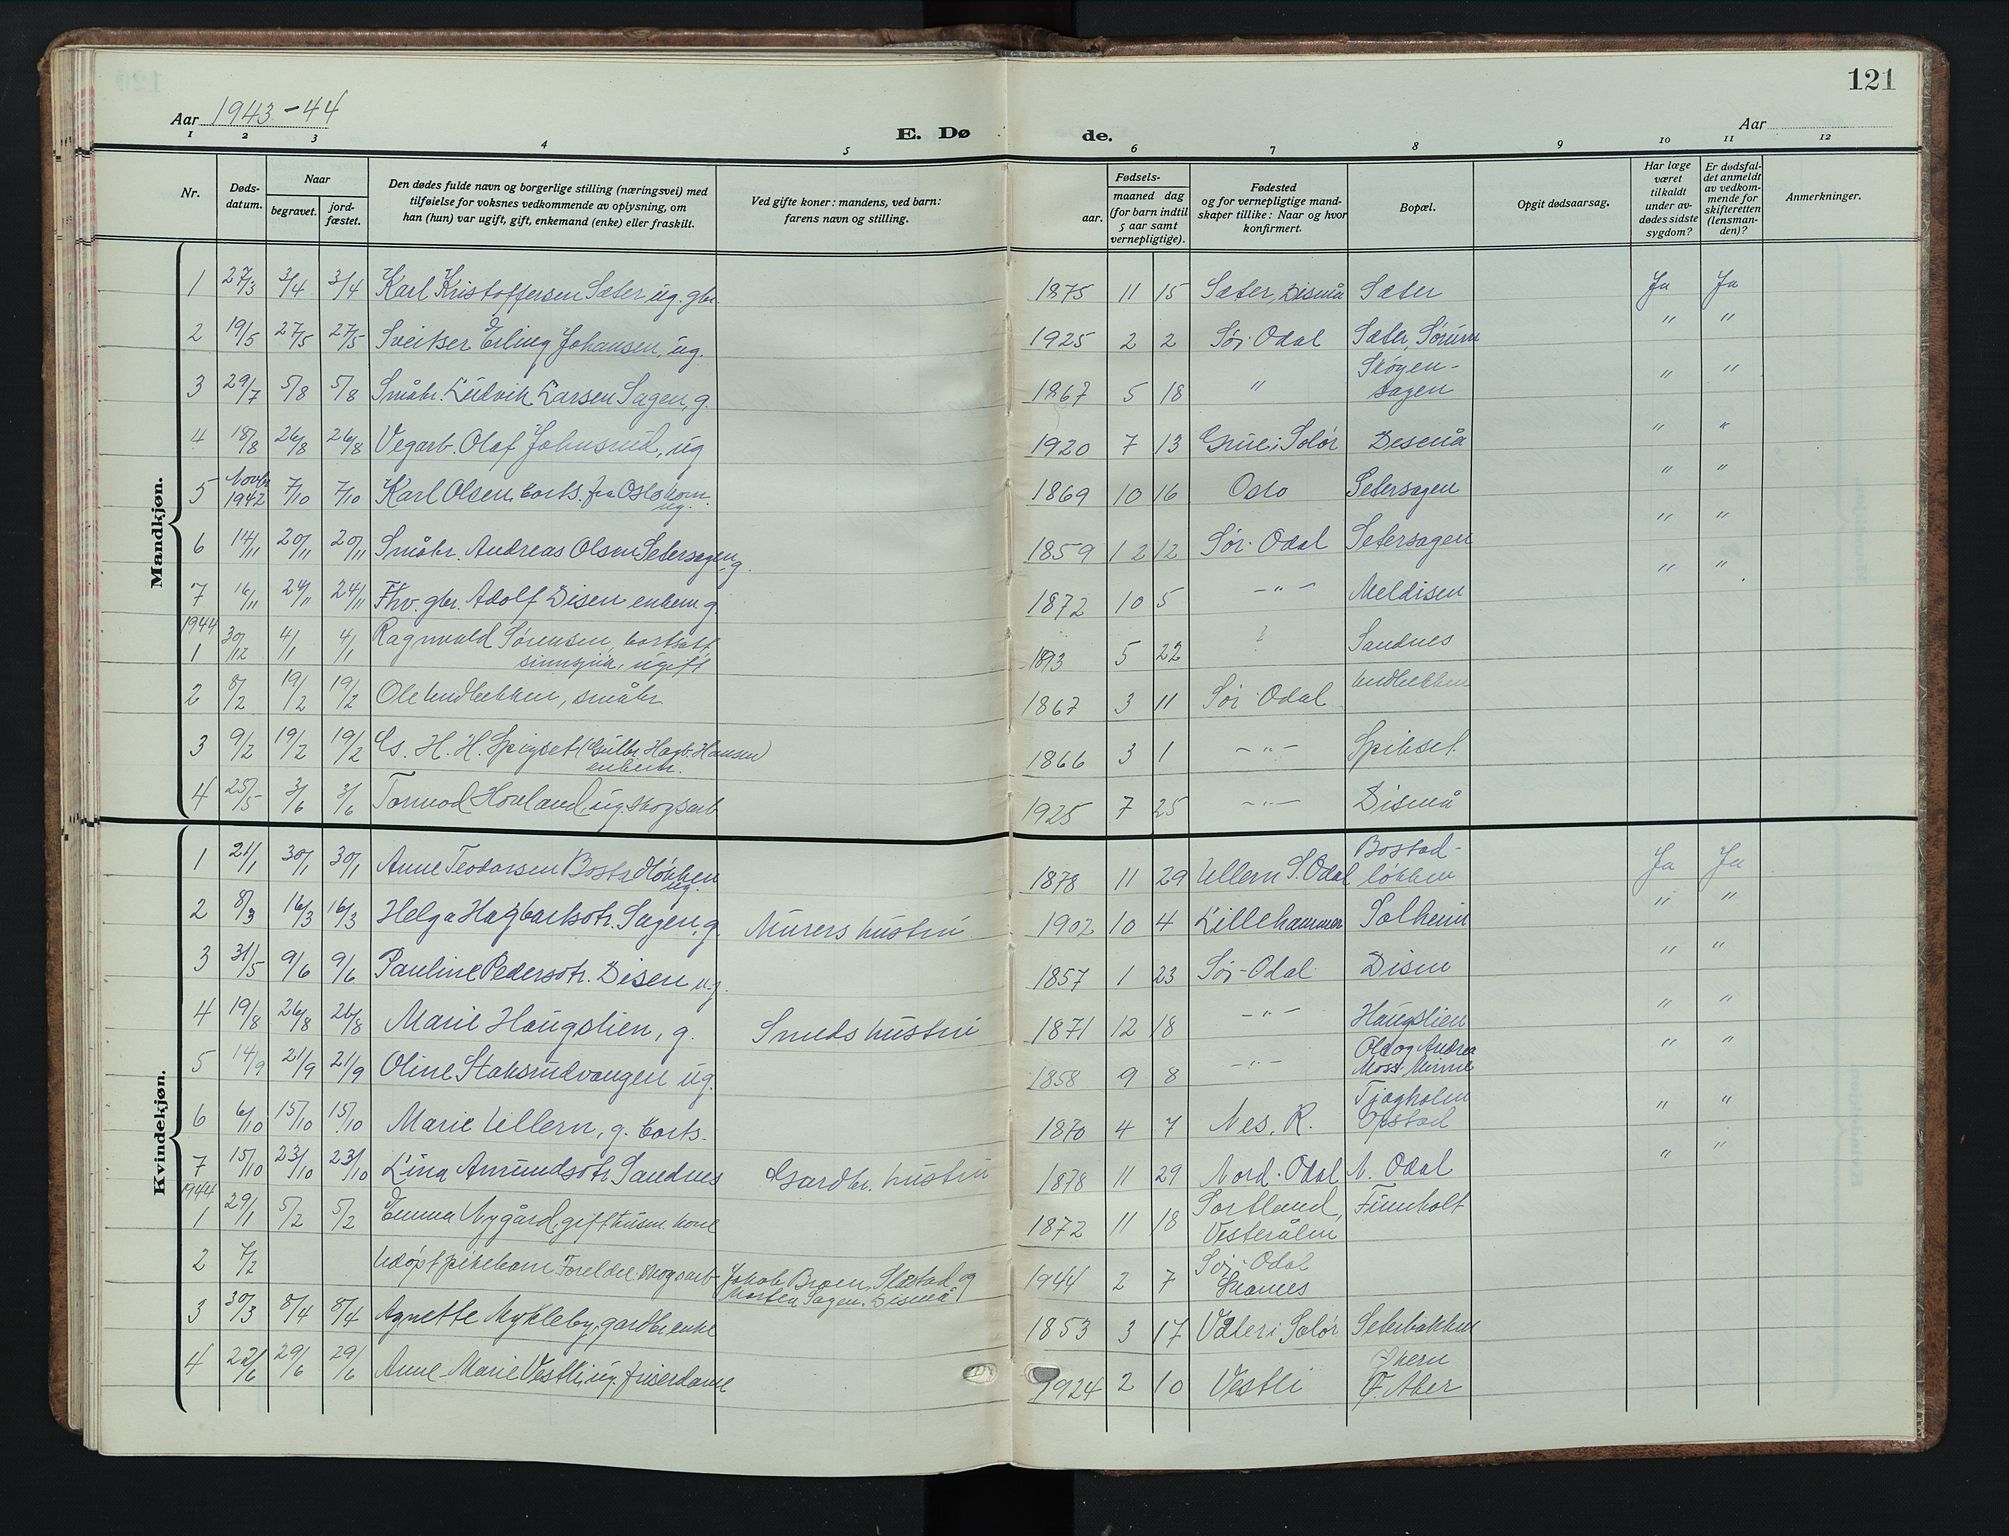 121
Aar 1943-44
E. Dø de.
Aar
1 2 3 4 5 6 7 8 9 10 11 12
Nr.
Døds-
datum.
Naar
begravet.
jord-
fæstet.
Den dødes fulde navn og borgerlige stilling (næringsvei) med
tilføielse for voksnes vedkommende av oplysning, om
han (hun) var ugift, gift, enkemand (enke) eller fraskilt.
Ved gifte koner: mandens, ved barn:
farens navn og stilling.
Fødsels-
aar.
maaned dag
(for barn indtil
5 aar samt
vernepligtige).
Fødested
og for vernepligtige mand-
skaper tillike: Naar og hvor
konfirmert.
Bopæl.
Opgit dødsaarsag.
Har læge
været
tilkaldt
under av-
dødes sidste
sygdom?
Er dødsfal-
det anmeldt
av vedkom-
mende for
skifteretten
(lensman-
den)?
Anmerkninger.
Mandkjøn.
1 27/3 3/4 3/4 Karl Kristoffersen Sæter ug. gbr. 1875 11 15 Sæter, Disenå Sæter Ja Ja
2 19/5 27/5 27/5 Sveitser Erling Johansen, ug. 1925 2 2 Sør-Odal Sæter, Sørum " "
3 29/7 5/8 5/8 Småbr. Ludvik Larsen Sagen, g. 1867 5 18 " Skøyen-
sagen " "
4 18/8 26/8 26/8 Vegarb. Olaf Johnsrud, ug 1920 7 13 Grue i Solør Disenå " "
5 Novbr 1942 7/10 7/10 Karl Olsen, forts. fra Oslo kom.
ug. 1869 10 16 Oslo Setersagen " "
6 14/11 20/11 20/11 Småbr. Andreas Olsen Setersagen, g. 1859 12 12 Sør-Odal Setersagen " "
7 16/11 24/11 24/11 Fhv. gbr. Adolf Disen enkem. g 1872 10 5 -"- Meldisen " "
1944
1 30/12 4/1 4/1 Ragnvald Sørensen, bortsatt
sinnsjuk, ugift 1893 5 22 ? Sandnes
2 8/2 19/2 19/2 Ole Lundbekken, småbr 1867 3 11 Sør-Odal Lundbekken
3 9/2 19/2 19/2 H. H. Spigset (Gulbr. Hagb. Hansen)
enkem. 1866 3 1 -"- Spikset
4 25/5 3/6 3/6 Tormod Hovland, ug. skogsarb 1925 7 25 -"- Disenå
Kvindekjøn.
1 21/1 30/1 30/1 Anne Teodorsen Bostadløkken
ug. 1878 11 29 Ullern S. Odal Bostad-
løkken Ja Ja
2 8/3 16/3 16/3 Helga Hagbartsdtr. Sagen, g. Murers hustru 1902 10 4 Lillehammer Solheim " "
3 31/5 9/6 9/6 Pauline Pedersdtr. Disen ug. 1857 1 23 Sør-Odal Disen " "
4 19/8 26/8 26/8 Marie Haugslien, g. Smeds hustru 1871 12 18 -"- Haugslien " "
5 14/9 21/9 21/9 Oline Staksrudvangen ug. 1858 9 8 -"- Ole og Andrea
Moss Minne " "
6 6/10 15/10 15/10 Marie Ullern, g. forts. 1870 4 7 Nes, R. Tjøgholm
Opstad " "
7 15/10 23/10 23/10 Lina Amundsdtr. Sandnes Gardbr. hustru 1878 11 29 Nord-Odal N. Odal " "
1944
1 29/1 5/2 5/2 Emma Nygård, gift husm. kone 1872 11 18 Sortland,
Vesterålen Finnholt
2 7/2 Udøpt pikebarn Foreldre skogsarb. Jakob Broen, Slåstad og
Marten Sagen, Disenå 1944 2 7 Sør-Odal
Skarnes
3 30/3 8/4 8/4 Agnette Mykleby, gardbr.enke 1853 3 17 Våler i Solør Seterbakken
4 22/6 29/6 29/6 Anne-Marie Vestli, ug. friserdame 1924 2 10 Vestli Økern
Ø. Aker